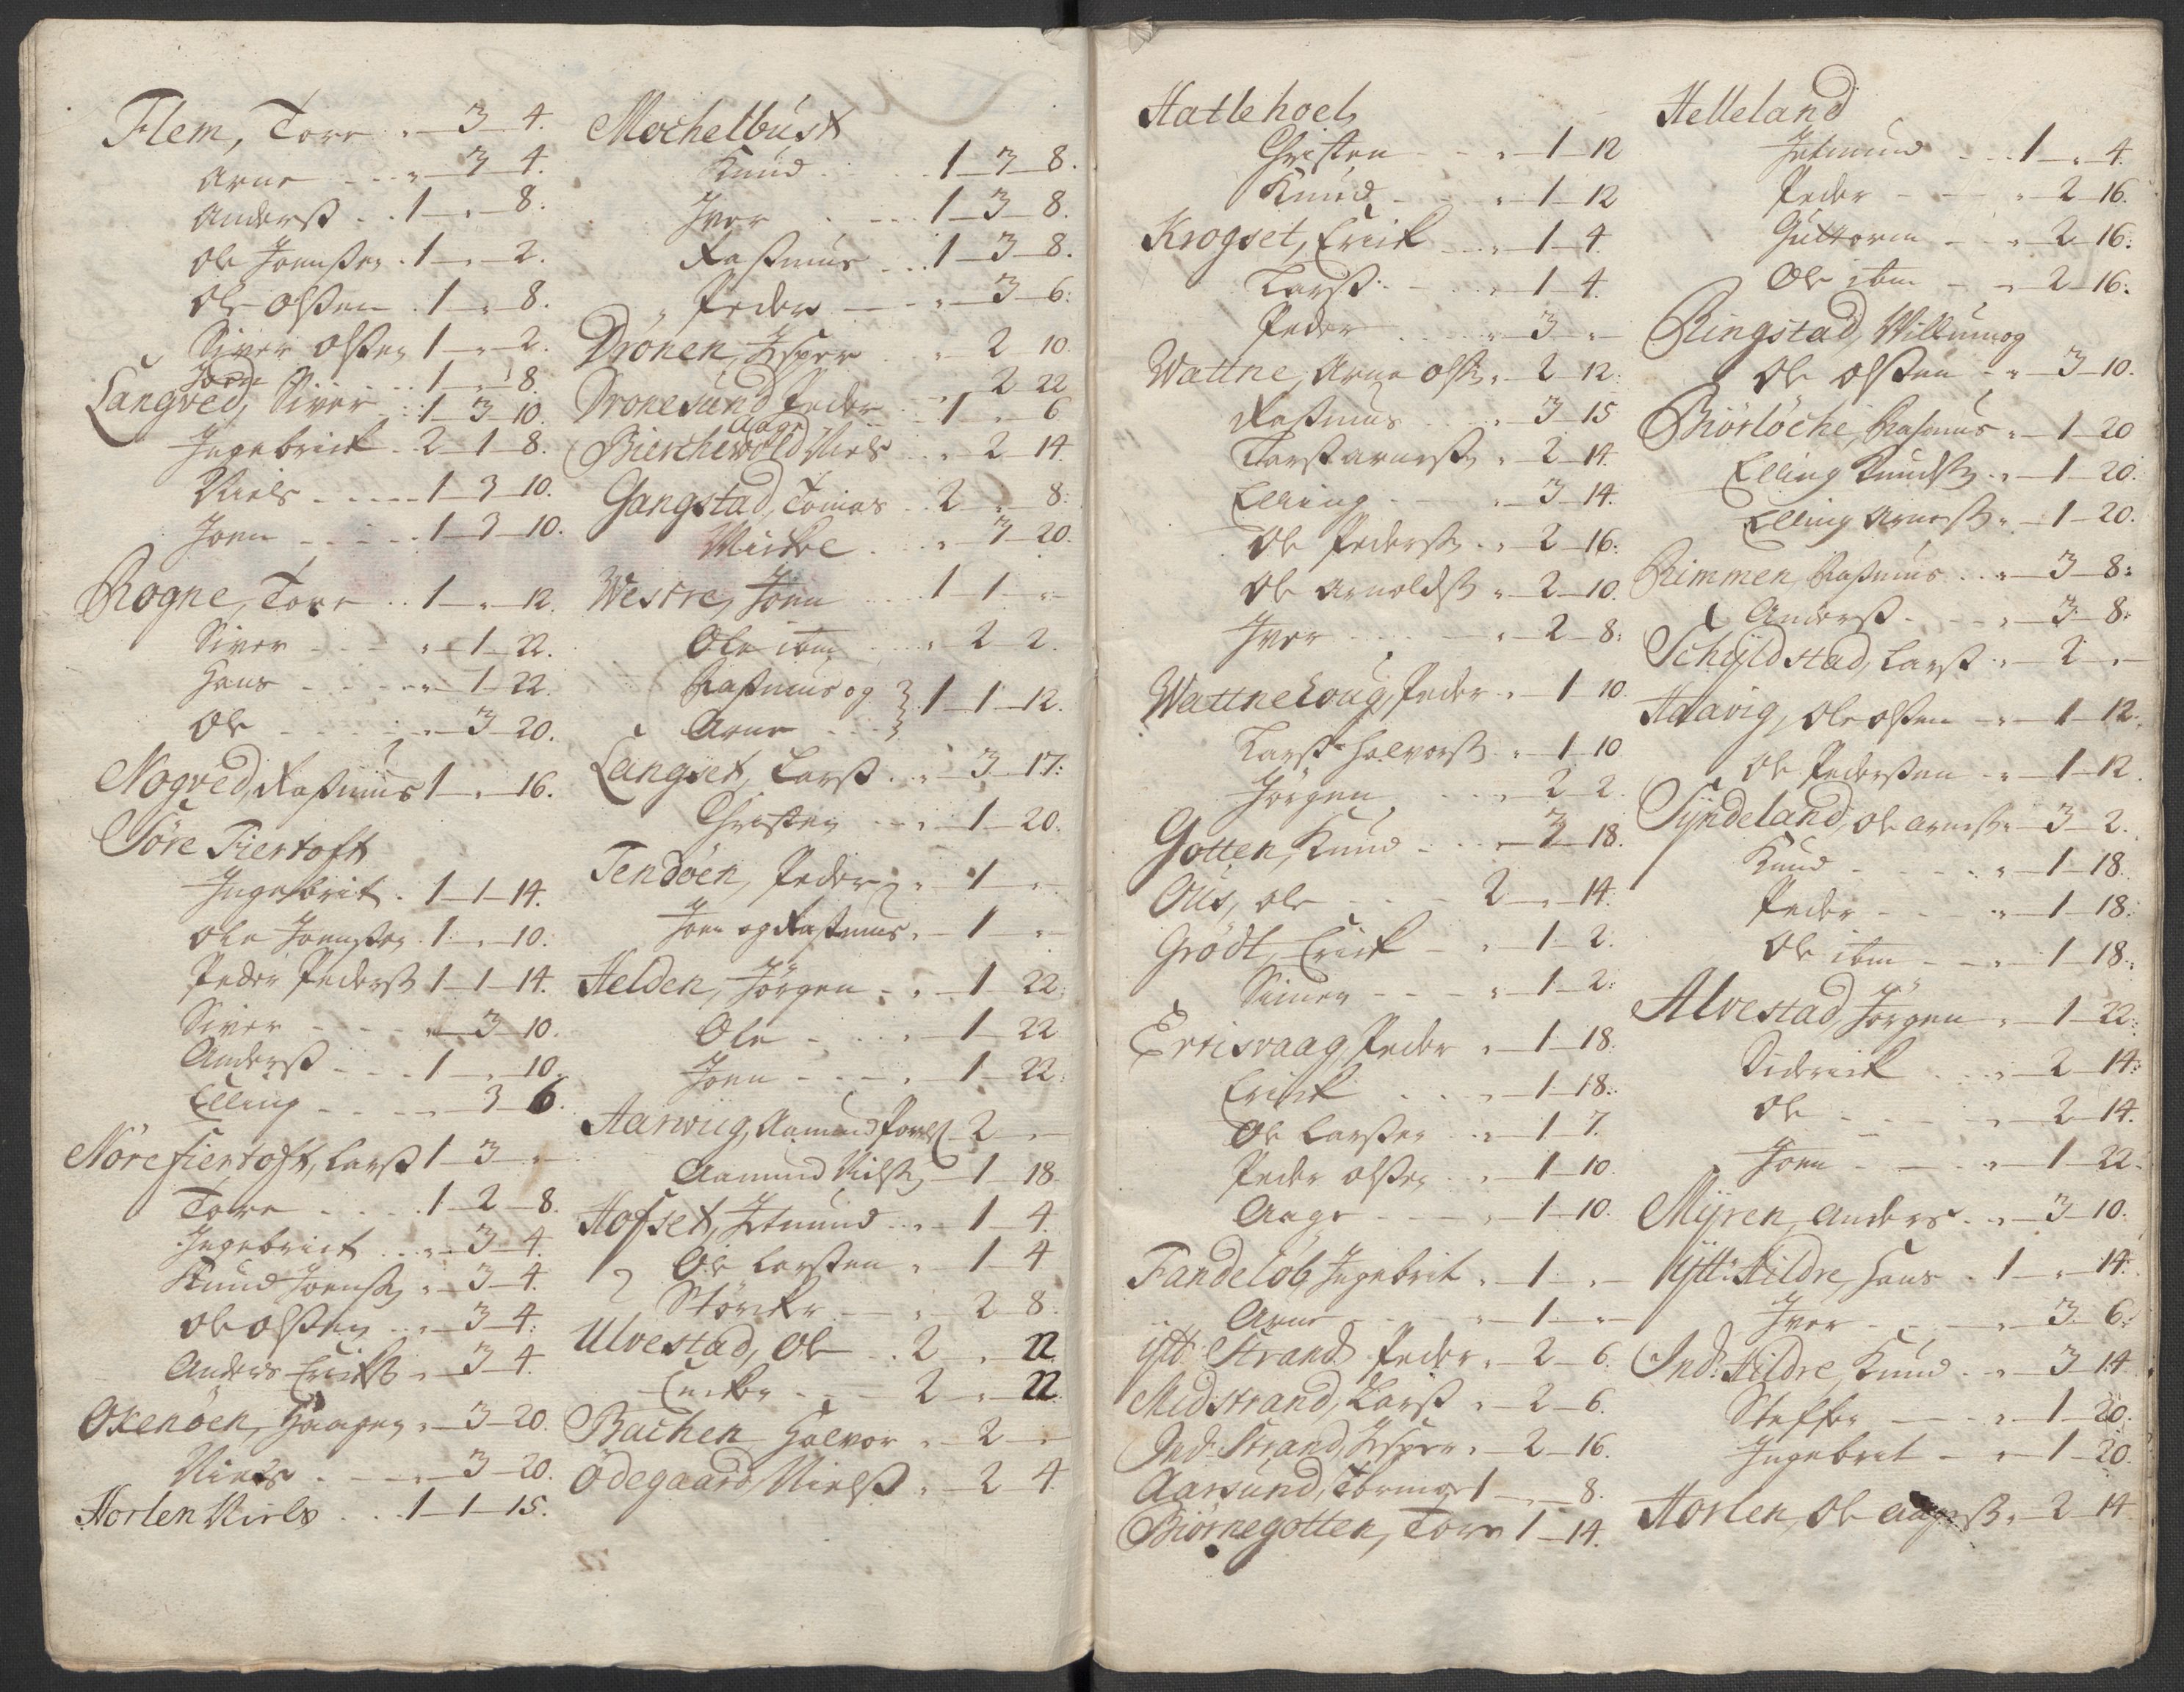 Flem, Tore „ 3 4.
Arne „ 3 4.
Anderß 1 „ 8.
Ole Joenßen 1 „ 2.
Ole Olßen 1 „ 8.
Siver Olßen 1 „ 2.
Joen 1 „ 8.
Langved, Siver 1 3 10.
Ingebrict 2 1 8.
Niels 1 3 10.
Joen 1 3 10.
Rogne, Tore 1 „ 12.
Siver „ 1 22.
Hans „ 1 22.
Ole „ 3 20.
Nogved, Raßmus 1 „ 16.
Söre Fiertoft
Ingebrit 1 1 14.
Ole Joenßen 1 „ 10.
Peder Pederß 1 1 14.
Siver „ 3 10.
Anderß 1 „ 10.
Elling „ 3 6.
Nöre fiertoft, Larß 1 3 „
Tore 1 2 8.
Ingebrict „ 3 4.
Knud Joenß „ 3 4.
Ole Olßen „ 3 4.
Anders Erichß „ 3 4.
Oxenöen, Haagen „ 3 20.
Niels „ 3 20.
Horlen Niels 1 1 15.
Mochelbust
Knud 1 3 8.
Iver 1 3 8.
Raßmus 1 3 8.
Peder „ 3 6.
Drönen, Esper „ 2 10
„ 2 22
Dronesund Peder 1 „ 6
Aage
Bierchevold Niels „ 2 14.
Gangstad, Tomas 2 „ 8.
Mickel „ 3 20.
Westre, Joen 1 1 „
Ole ibm „ 2 2.
Raßmus og
Arne } 1 1 12.
Langset, Larß „ 3 17.
Christen „ 1 20.
Tendöen, Peder „ 1 „
Joen og Raßmus „ 1 „
Helden, Jörgen „ 1 22.
Ole „ 1 22
Joen „ 1 22.
Harwiig, Aamund Povelß 2 „
Aamund Nielß 1 18
Hofset, Jetmund „ 1 4.
Ole Larßen „ 1 4
Störcker „ 2 8.
Ulvestad, Ole 2 „ 22.
2 „ 22.
Bachen Halvor „ 2 „
Ödegaard Nielß „ 2 4.
Hatlehoel,
Christen „ 1 12
Knud „ 1 12
Krogset, Erick „ 1 4.
Larß „ 1 4.
Peder „ 3 „
Wattne, Arne Olß „ 2 12.
Raßmus „ 3 15
Larß Arneß „ 2 14.
Elling „ 3 14.
Ole Pederß „ 2 16.
Ole Arnoldß „ 2 10.
Iver „ 2 8.
Wattneloug, Peder „ 1 10.
Larß Halvorß „ 1 10
Jörgen „ 2 2.
Gotten, Knud „ 3 18.
Ous, Ole 2 „ 14.
Grödt, Erick „ 1 2.
Simen „ 1 2.
Ertisvaag, Peder „ 1 18.
Erick „ 1 18.
Ole Larßen „ 1 7.
Peder Olßen „ 1 10.
Aage „ 1 10.
Fandelöb, Ingebrit „ 1 „
Arne „ 1 „
Ytt: Strand, Peder „ 2 6.
Midstrand, Larß „ 2 6.
Ind: Strand, Esper „ 2 16.
Aarsund, 1 „ 8.
Biörnegotten, Tore 1 14.
Helleland
Jetmund 1 „ 4.
Peder „ 2 16.
Guttorm „ 2 16.
Ole ibm „ 2 16.
Ringstad, Villum og
Ole Olßen „ 3 10.
Biörlöche, Rasmus „ 1 20
Elling Knudß „ 1 20.
Elling Arneß „ 1 20.
Rimmen, Raßmus „ 3 8.
Anderß „ 3 8.
Schyldstad, Larß „ 2 „
Haavig, Ole Olßen „ 1 12.
Ole Pederßen „ 1 12.
Syndeland, Ole Arneß „ 3 2.
Knud „ 1 18.
Peder „ 1 18.
Ole ibm „ 1 18.
Alvestad, Jörgen „ 1 22.
Diderick „ 2 14.
Ole „ 2 14.
Joen „ 1 22.
Myren, Anders „ 3 10.
Ytt: Hildre, Hans 1 „ 14.
Iver „ 3 6.
Ind: Hildre, Knud „ 3 14
Steffen „ 1 20.
Ingebret „ 1 20.
Horlen, Ole Aageß „ 2 14.